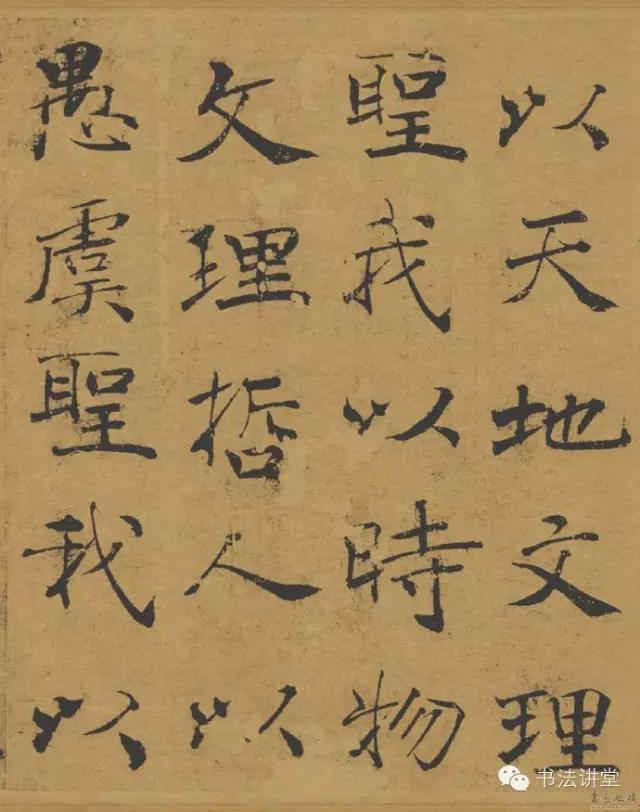 以天地文理
聖我以時物
文理哲人以
愚虞聖我以
书法讲堂